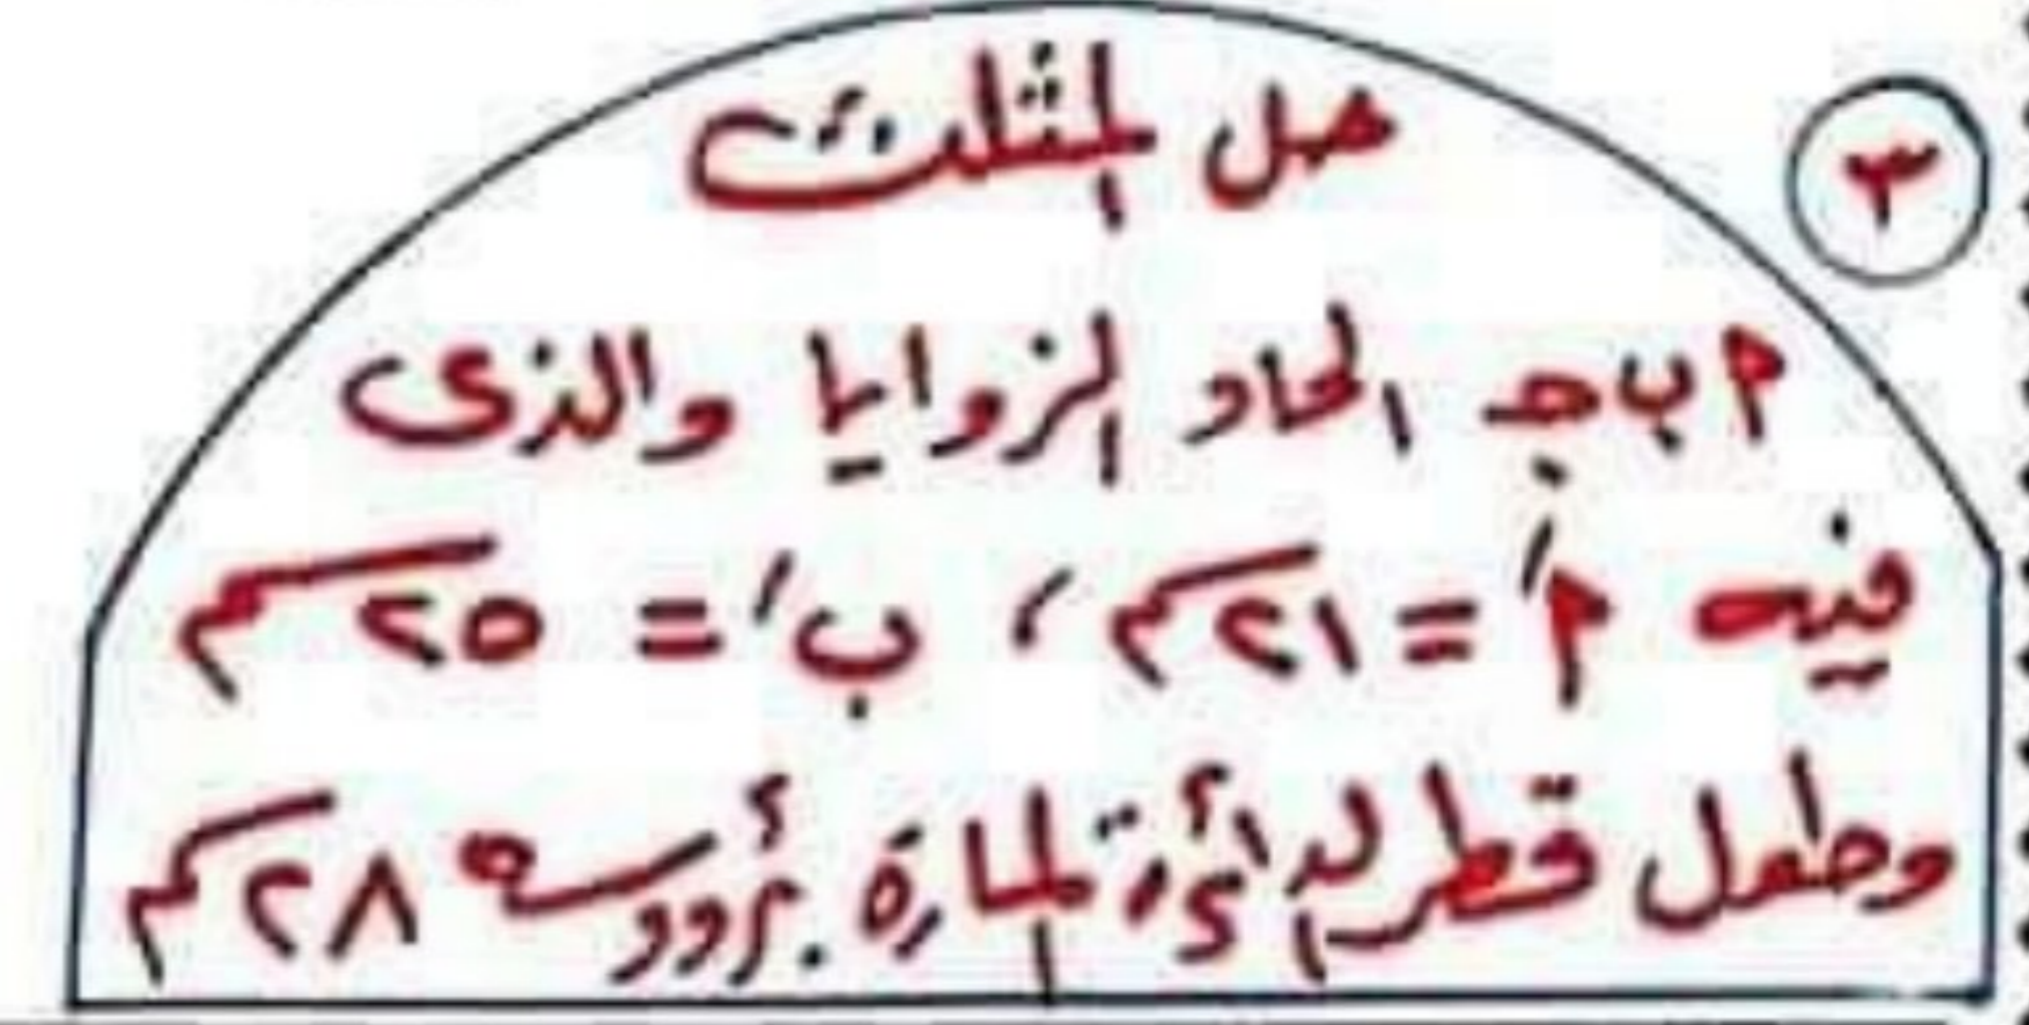 ٣
حل المثلث
أ ب جـ الحاد الزوايا والذى
فيه أَ = ٢١ سم ، بَ = ٢٥ سم
وطول قطر الدائرة المارة برؤوسه ٢٨ سم